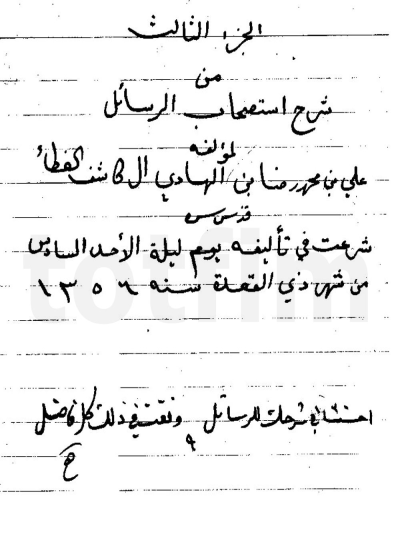 الجزء الثالث
من
شرح استصحاب الرسائل
لمؤلفه
علي بن محمد رضا بن الهادي آل كاشف الغطاء
قدس سره
شرعت في تأليفه يوم ليلة الأحد السادس
من شهر ذي القعدة سنه ١٣٥٦
شرحك للرسائل وفقت في ذلك كل فاضل